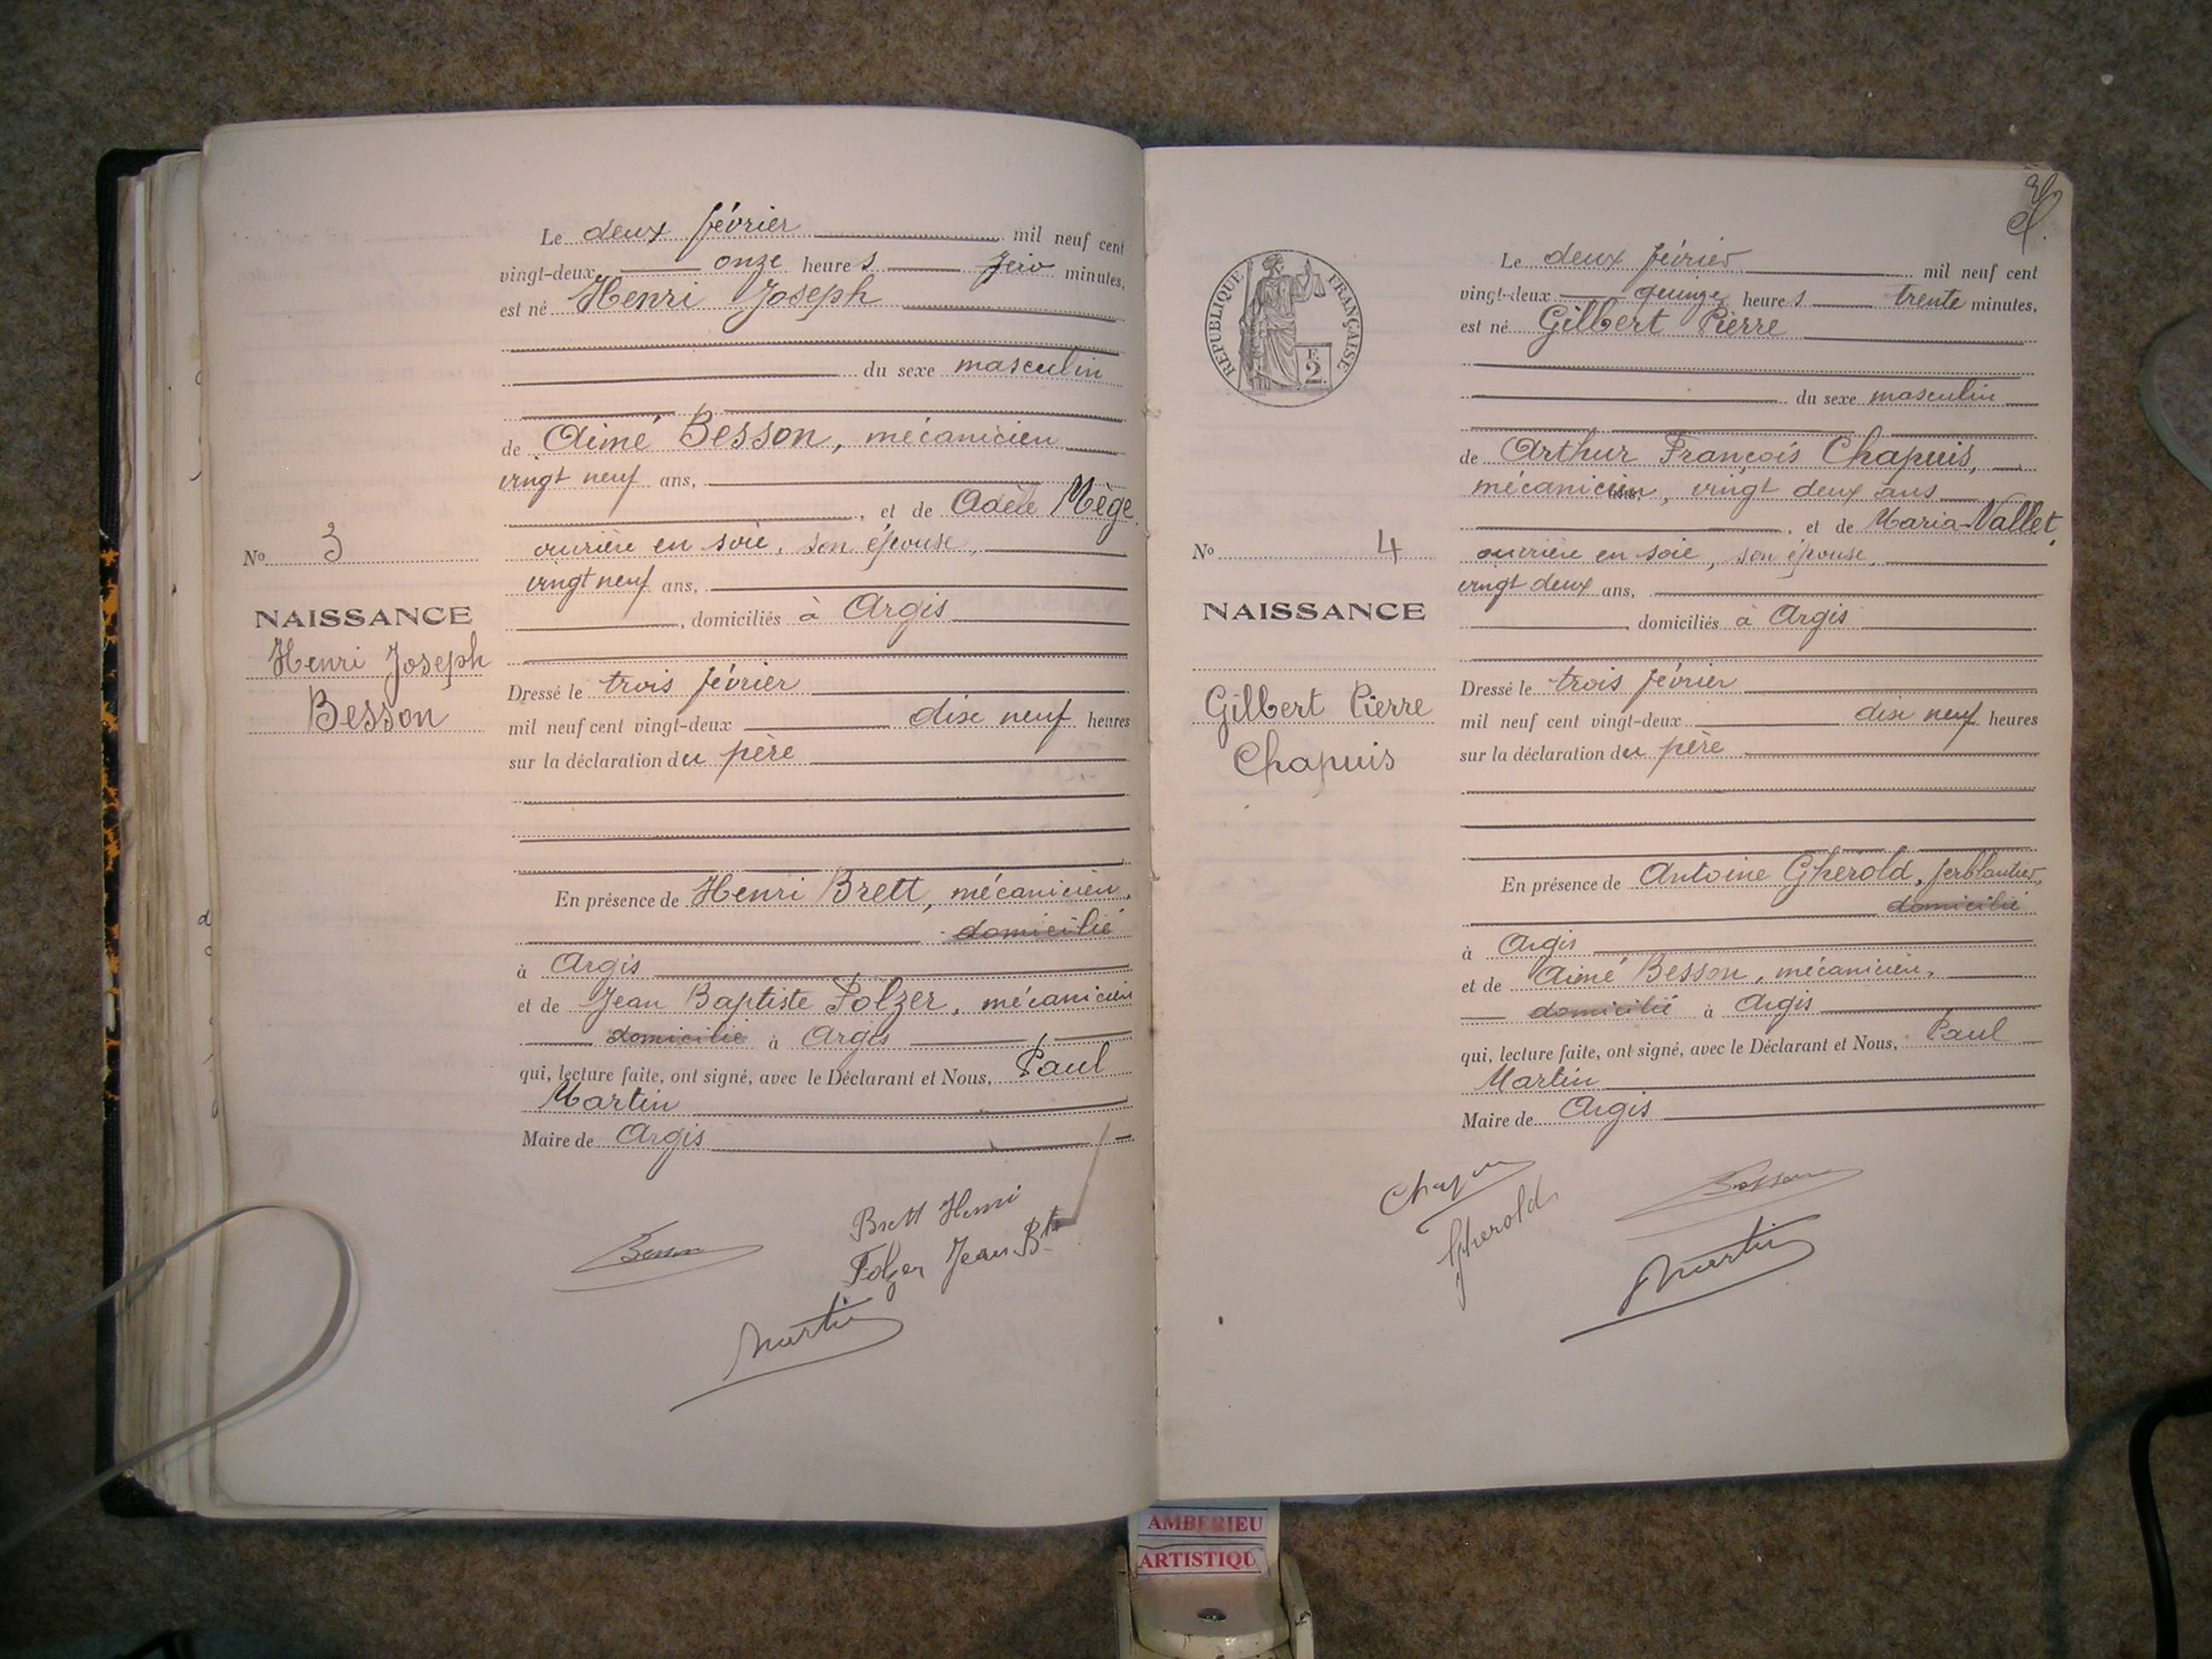 Le deux février mil neuf cent
vingt-deux onze heures zéro minutes,
est né Henri Joseph
du sexe masculin
de Aimé Besson, mécanicien
vingt neuf ans,
, et de Adèle Mège
ouvrière en soie, son épouse,
vingt neuf ans,
, domiciliés à Argis
Dressé le trois février
mil neuf cent vingt-deux dix neuf heures
sur la déclaration du père
En présence de Henri Brett, mécanicien,
domicilié
à Argis
et de Jean Baptiste Folzer, mécanicien
domicilié à Argis
qui, lecture faite, ont signé, avec le Déclarant et Nous, Paul
Martin
Maire de Argis
No 3
NAISSANCE
Henri Joseph
Besson
Besson
Brett Henri
Folzer Jean Bte
Martin
RÉPUBLIQUE FRANÇAISE
F.
2
Le deux février mil neuf cent
vingt-deux quinze heures trente minutes,
est né Gilbert Pierre
du sexe masculin
de Arthur François Chapuis,
mécanicien, vingt deux ans
, et de Maria Vallet,
ouvrière en soie, son épouse,
vingt deux ans,
, domiciliés à Argis
Dressé le trois février
mil neuf cent vingt-deux dix neuf heures
sur la déclaration du père
En présence de Antoine Ghérold, ferblantier,
domicilié
à Argis
et de Aimé Besson, mécanicien,
domicilié à Argis
qui, lecture faite, ont signé, avec le Déclarant et Nous, Paul
Martin
Maire de Argis
No 4
NAISSANCE
Gilbert Pierre
Chapuis
Chapuis
Gherold
Besson
Martin
AMBERIEU
ARTISTIQU